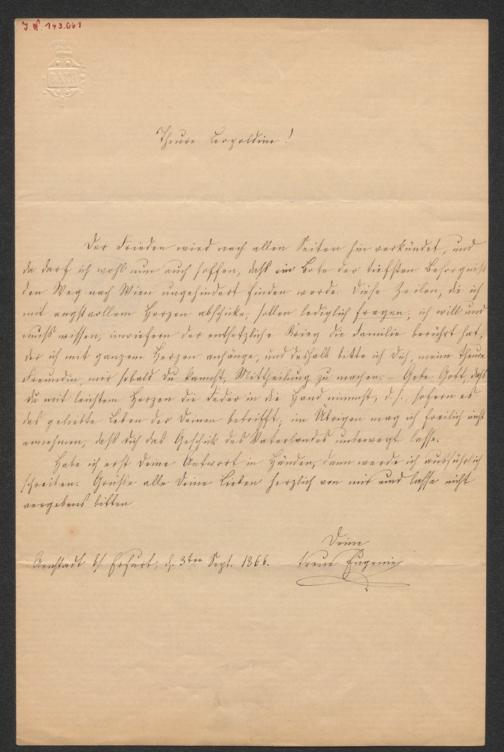 J. N. 143.061
Theure Leopoldine!
Der Frieden wird nach allen Seiten hin verkündet, und
da darf ich wohl nun auch hoffen, daß ein Bote der tiefsten Besorgniß
den Weg nach Wien ungehindert finden werde. Diese Zeilen, die ich
mit angstvollem Herzen abschicke, sollen lediglich fragen; ich will und
muß wissen, inwiefern der entsetzliche Krieg die Familie berührt hat,
der ich mit ganzem Herzen anhänge, und deshalb bitte ich Dich, meine theure
Freundin, mir sobald Du kannst, Mittheilung zu machen. – Gebe Gott, daß
Du mit leichtem Herzen die Feder in die Hand nimmst, d. h. sofern es
das geliebte Leben der Deinen betrifft; im Übrigen mag ich freilich nicht
annehmen, daß Dich das Geschick des Vaterlandes unbewegt lasse.
Habe ich erst Deine Antwort in Händen, dann werde ich ausführlich
schreiben. Grüße alle Deine Lieben herzlich von mir und lasse nicht
vergebens bitten
Deine
Arnstadt b/ Erfurt, d. 3ten Sept. 1866.
treue Eugenie